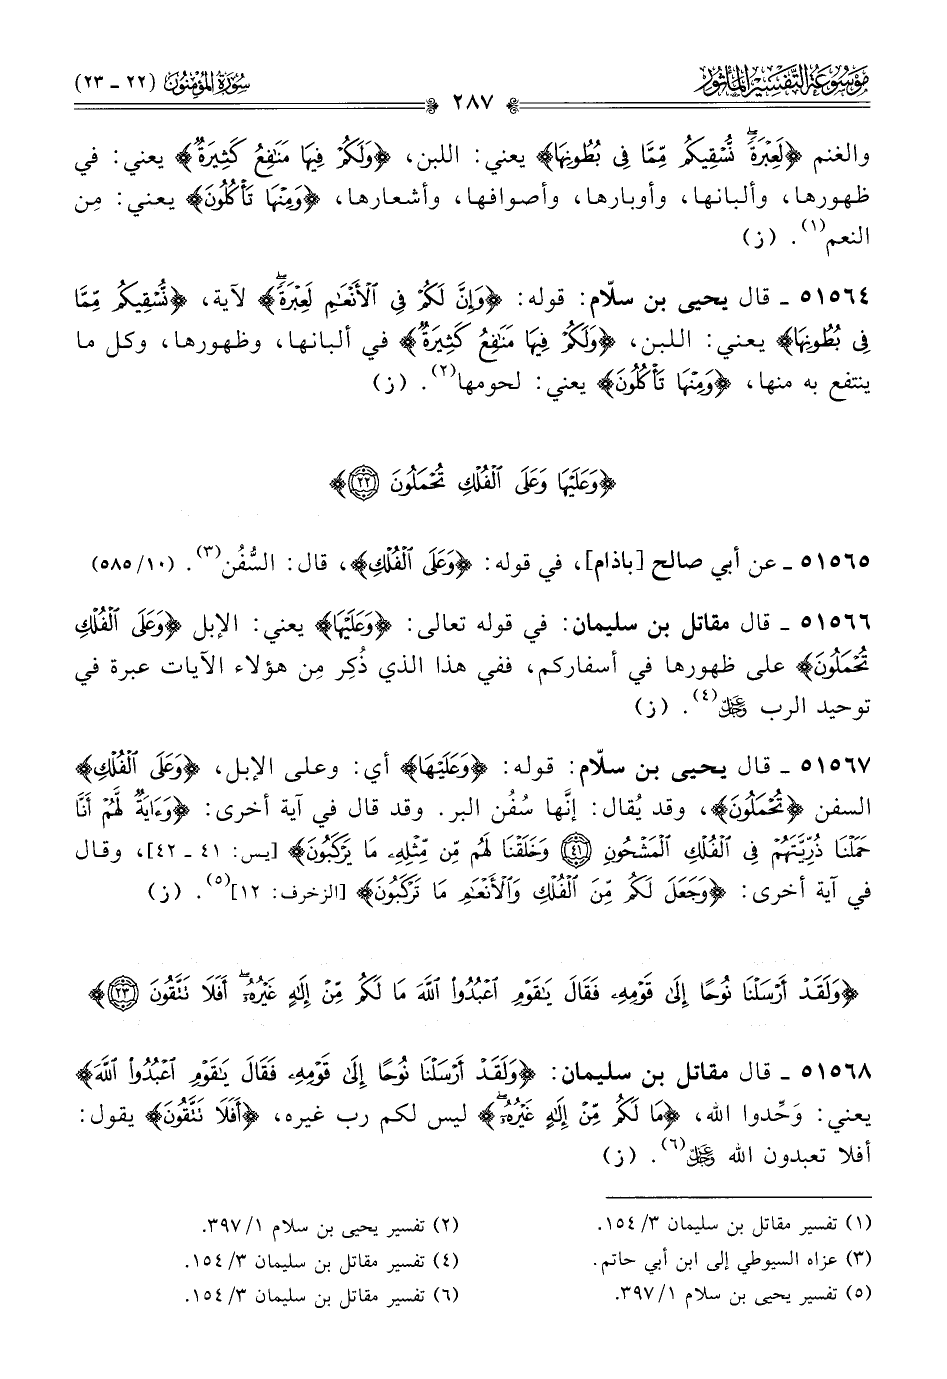 موسوعة التفسير المأثور
سورة المؤمنون (٢٢ - ٢٣)
٢٨٧
والغنم ﴿لَعِبْرَةً ۖ نُّسْقِيكُم مِّمَّا فِى بُطُونِهَا﴾ يعني: اللبن، ﴿وَلَكُمْ فِيهَا مَنَٰفِعُ كَثِيرَةٌ﴾ يعني: في
ظهورها، وألبانها، وأوبارها، وأصوافها، وأشعارها، ﴿وَمِنْهَا تَأْكُلُونَ﴾ يعني: مِن
النعم(١). (ز)
٥١٥٦٤ ـ قال يحيى بن سلّام: قوله: ﴿وَإِنَّ لَكُمْ فِى ٱلْأَنْعَٰمِ لَعِبْرَةً ۖ﴾ لآية، ﴿نُّسْقِيكُم مِّمَّا
فِى بُطُونِهَا﴾ يعني: اللبن، ﴿وَلَكُمْ فِيهَا مَنَٰفِعُ كَثِيرَةٌ﴾ في ألبانها، وظهورها، وكل ما
ينتفع به منها، ﴿وَمِنْهَا تَأْكُلُونَ﴾ يعني: لحومها(٢). (ز)
﴿وَعَلَيْهَا وَعَلَى ٱلْفُلْكِ تُحْمَلُونَ ٢٢﴾
٥١٥٦٥ ـ عن أبي صالح [باذام]، في قوله: ﴿وَعَلَى ٱلْفُلْكِ﴾، قال: السُّفُن(٣). (١٠/٥٨٥)
٥١٥٦٦ ـ قال مقاتل بن سليمان: في قوله تعالى: ﴿وَعَلَيْهَا﴾ يعني: الإبل ﴿وَعَلَى ٱلْفُلْكِ
تُحْمَلُونَ﴾ على ظهورها في أسفاركم، ففي هذا الذي ذُكِر مِن هؤلاء الآيات عبرة في
توحيد الرب عز وجل(٤). (ز)
٥١٥٦٧ ـ قال يحيى بن سلّام: قوله: ﴿وَعَلَيْهَا﴾ أي: وعلى الإبل، ﴿وَعَلَى ٱلْفُلْكِ﴾
السفن ﴿تُحْمَلُونَ﴾، وقد يُقال: إنَّها سُفُن البر. وقد قال في آية أخرى: ﴿وَءَايَةٌ لَّهُمْ أَنَّا
حَمَلْنَا ذُرِّيَّتَهُمْ فِى ٱلْفُلْكِ ٱلْمَشْحُونِ ٤١ وَخَلَقْنَا لَهُم مِّن مِّثْلِهِۦ مَا يَرْكَبُونَ﴾ [يس: ٤١ ـ ٤٢]، وقال
في آية أخرى: ﴿وَجَعَلَ لَكُم مِّنَ ٱلْفُلْكِ وَٱلْأَنْعَٰمِ مَا تَرْكَبُونَ﴾ [الزخرف: ١٢](٥). (ز)
﴿وَلَقَدْ أَرْسَلْنَا نُوحًا إِلَىٰ قَوْمِهِۦ فَقَالَ يَٰقَوْمِ ٱعْبُدُوا۟ ٱللَّهَ مَا لَكُم مِّنْ إِلَٰهٍ غَيْرُهُۥٓ ۖ أَفَلَا تَتَّقُونَ ٢٣﴾
٥١٥٦٨ ـ قال مقاتل بن سليمان: ﴿وَلَقَدْ أَرْسَلْنَا نُوحًا إِلَىٰ قَوْمِهِۦ فَقَالَ يَٰقَوْمِ ٱعْبُدُوا۟ ٱللَّهَ﴾
يعني: وَحِّدوا الله، ﴿مَا لَكُم مِّنْ إِلَٰهٍ غَيْرُهُۥٓ ۖ﴾ ليس لكم رب غيره، ﴿أَفَلَا تَتَّقُونَ﴾ يقول:
أفلا تعبدون الله عز وجل(٦). (ز)
(١) تفسير مقاتل بن سليمان ٣/ ١٥٤.
(٢) تفسير يحيى بن سلام ١/ ٣٩٧.
(٣) عزاه السيوطي إلى ابن أبي حاتم.
(٤) تفسير مقاتل بن سليمان ٣/ ١٥٤.
(٥) تفسير يحيى بن سلام ١/ ٣٩٧.
(٦) تفسير مقاتل بن سليمان ٣/ ١٥٤.